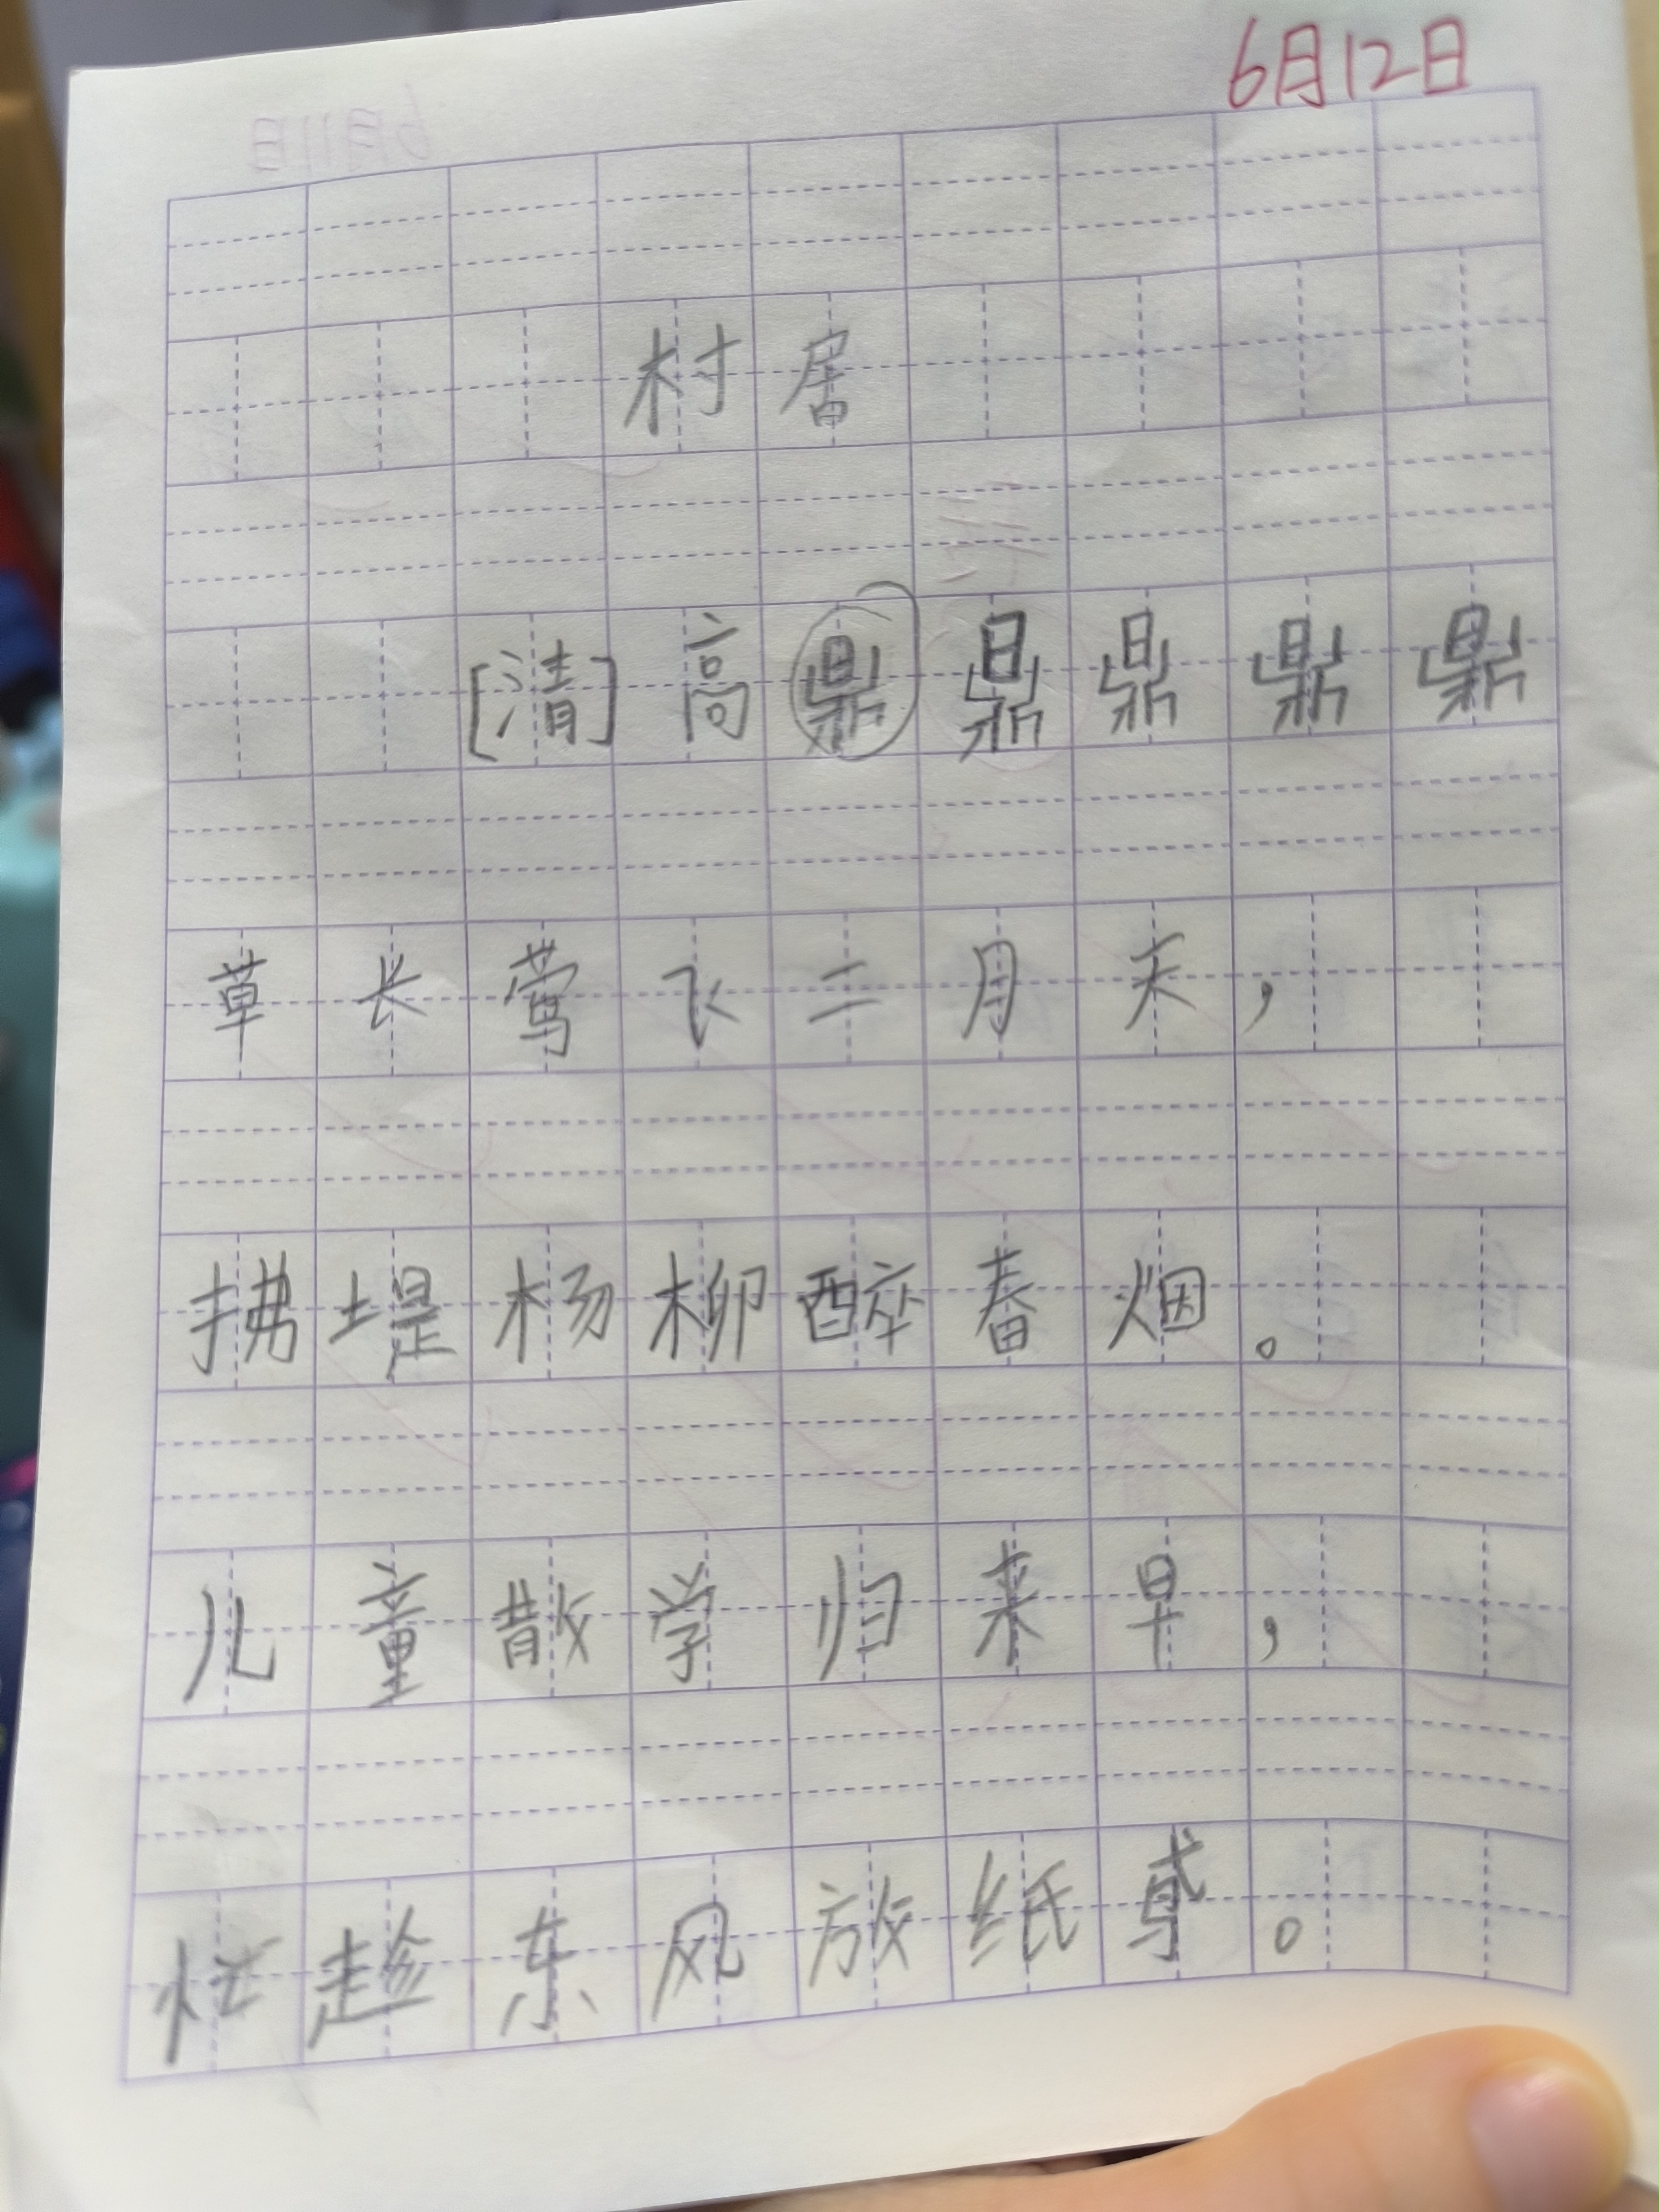 6月12日
村居
[清]高鼎鼎鼎鼎鼎
草长莺飞二月天，
拂堤杨柳醉春烟。
儿童散学归来早，
忙趁东风放纸鸢。